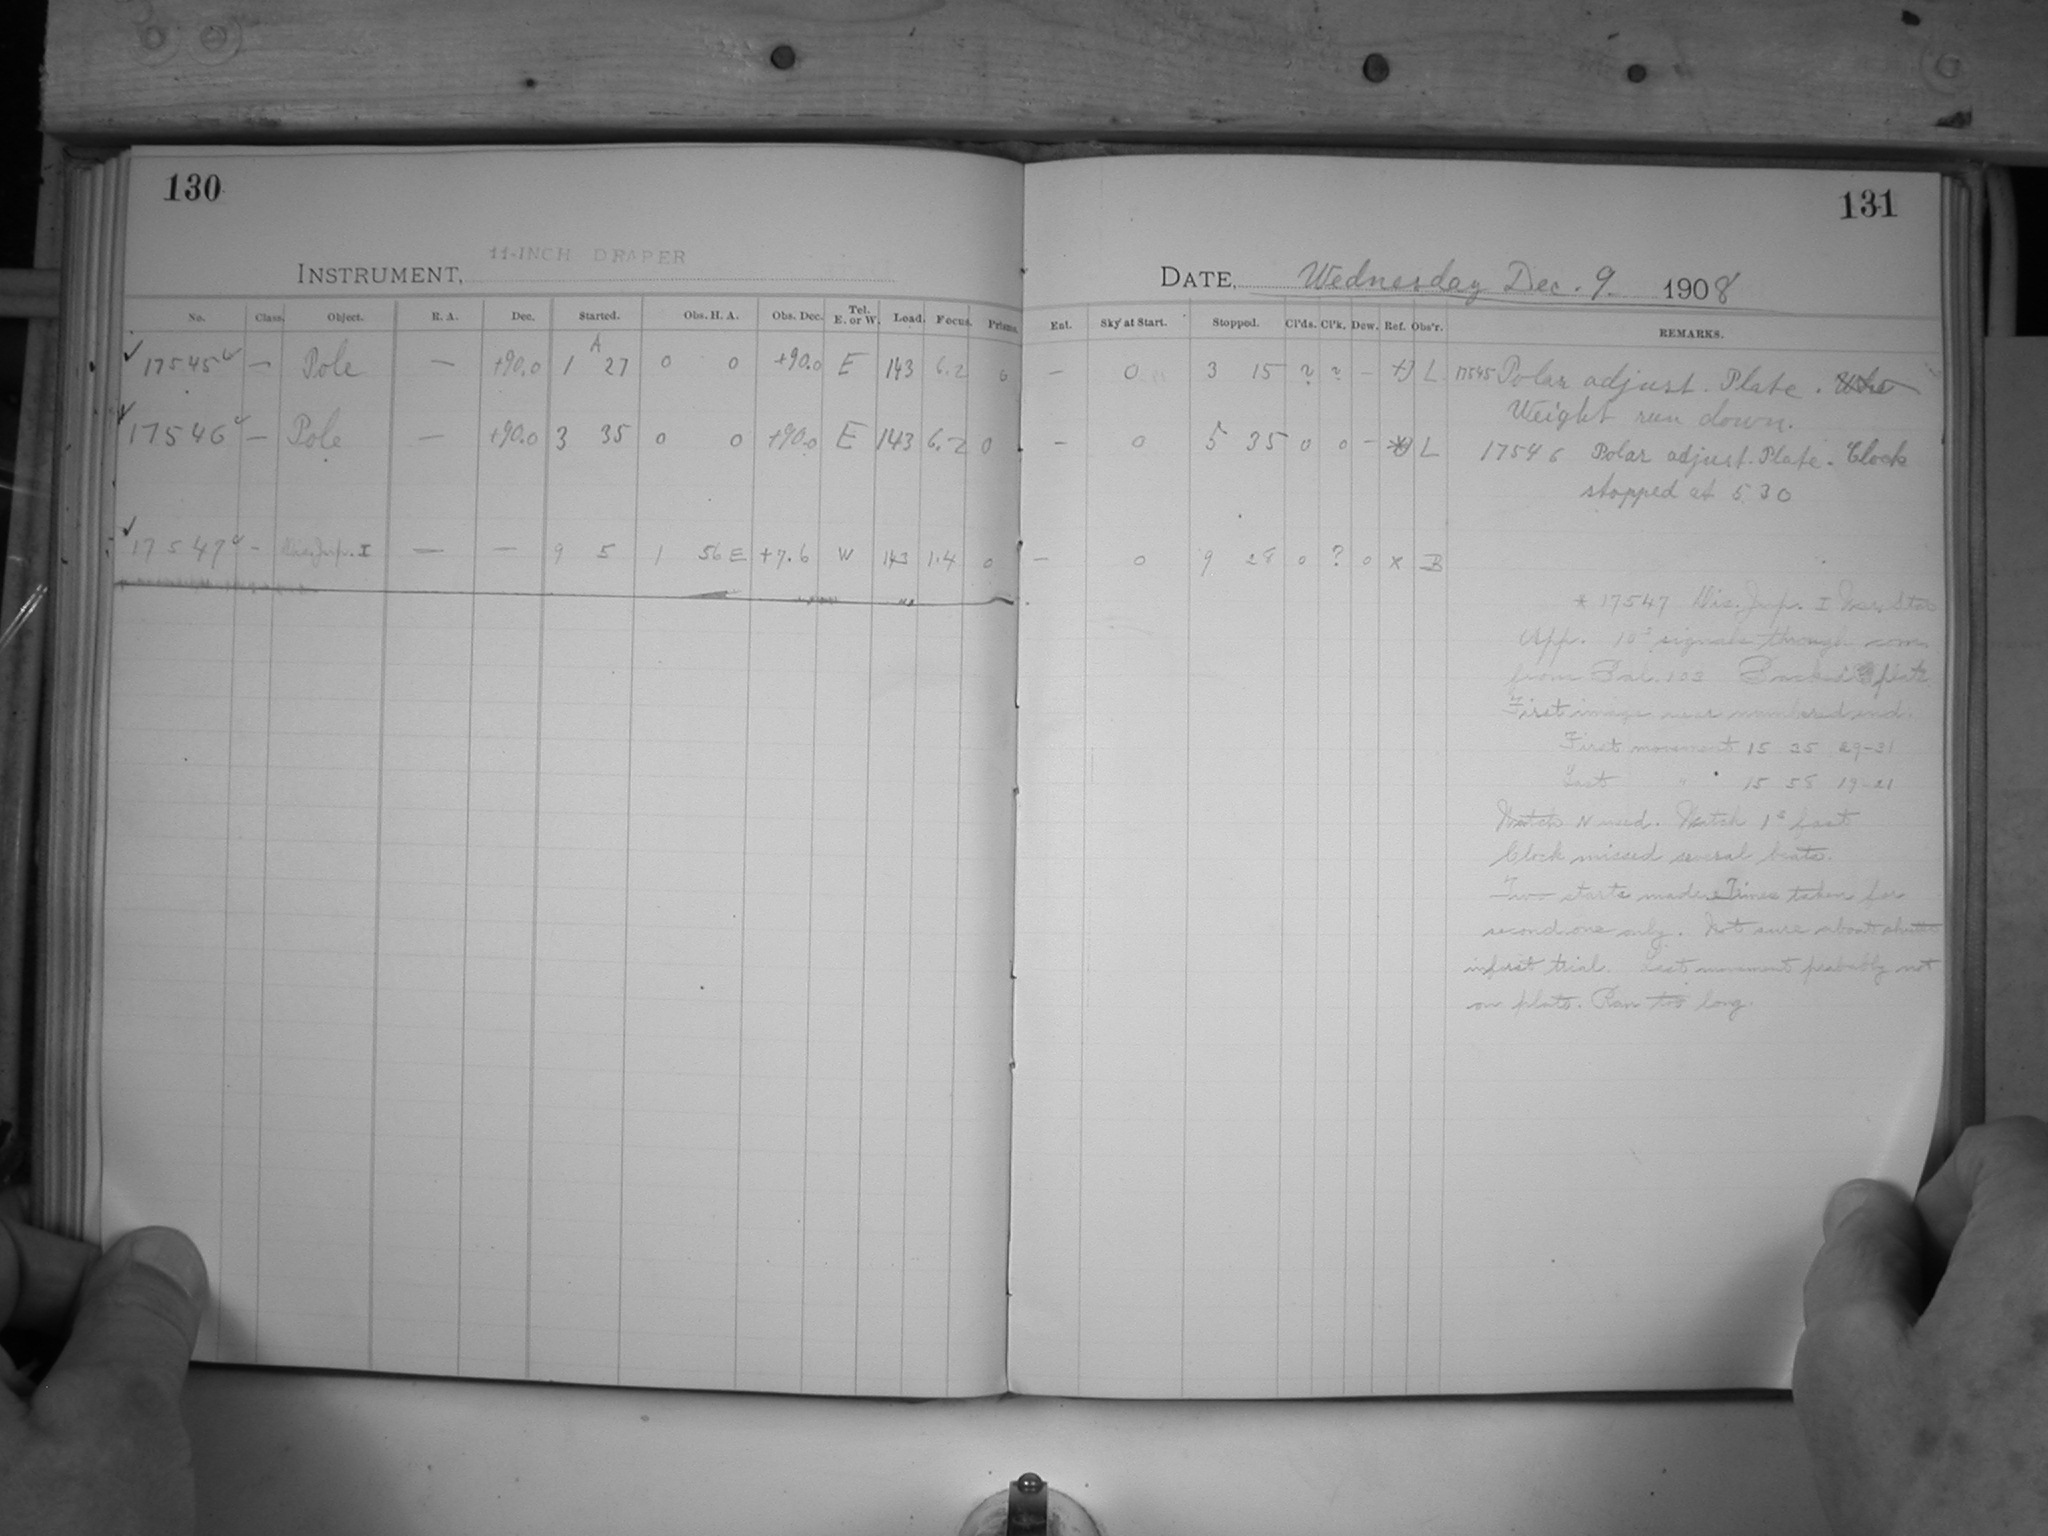 130
11-INCH DRAPER
INSTRUMENT,
No. Class. Object. R. A. Dec. Started. Obs. H. A. Obs. Dec. Tel. E. or W. Load. Focus. Prisms.
17545 — Pole — +90.0 1 A 27 0 0 +90.0 E 143 6.2 0
17546 — Pole — +90.0 3 35 0 0 +90.0 E 143 6.2 0
17547 — I — — 9 5 1 56 E +7.6 W 143 1.4 0
131
DATE, Wednesday Dec. 9. 1908
Ent. Sky at Start. Stopped. Cl'ds. Cl'k. Dew. Ref. Obs'r. REMARKS.
— 0 3 15 ? ? — L 17545 Polar adjust. Plate.
Weight run down.
— 0 5 35 0 0 — L 17546 Polar adjust. Plate. Clock
stopped at 5 30
— 0 9 28 0 ? 0 x B
* 17547 I
App. 10s signals through
from
First image near numbered end.
First movement 15 35 29-31
Last " 15 58 19-21
Watch N used. Watch 1s fast
Clock missed several beats.
Two starts made. Times taken for
second one only. Not sure about shutter
in first trial. Last movement probably not
on plate. Ran too long.